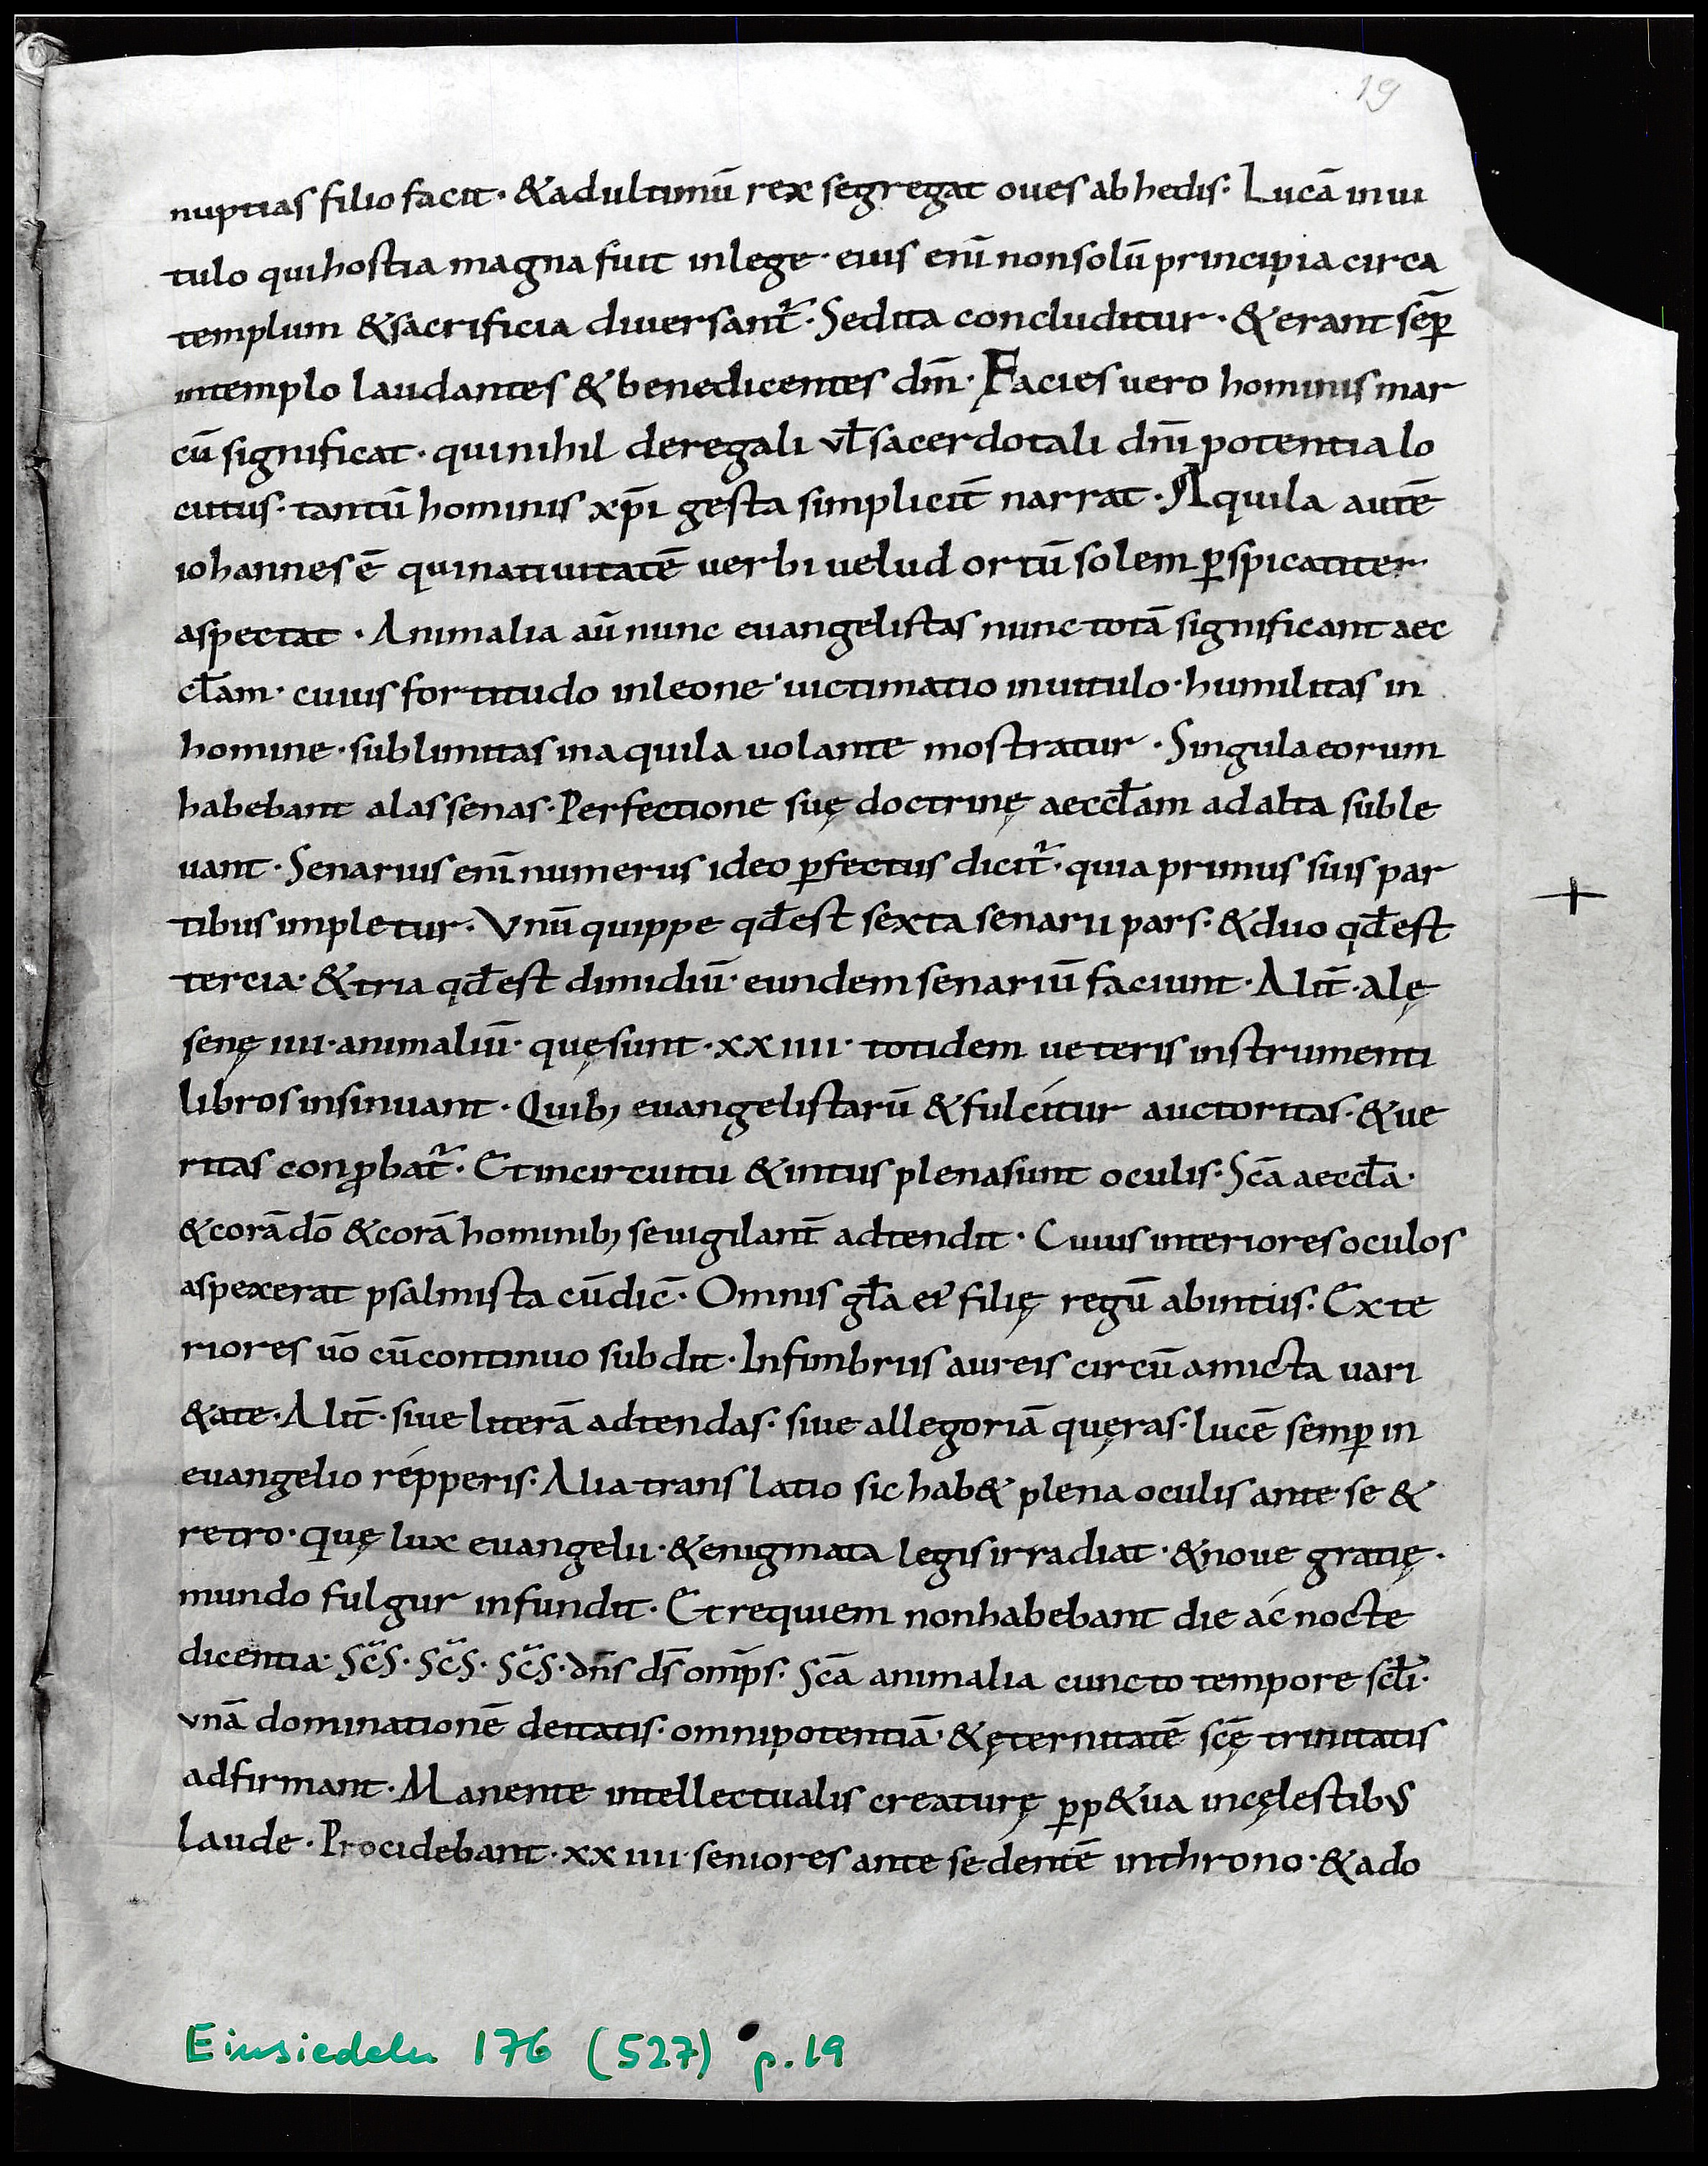 19
nuptias filio facit · & ad ultimū rex segregat oues ab hedis · Lucā in ui
tulo qui hostia magna fuit in lege · eius enī non solū principia circa
templum & sacrificia diuersant᷑ · Sed ita concluditur · & erant sēp̄
in templo laudantes & benedicentes dm̄ · Facies uero hominis mar
cū significat · qui nihil de regali vl̄ sacerdotali dnī potentia lo
cutus · tantū hominis xp̄i gesta simplicit̄ narrat · Aquila autē
iohannes ē qui natiuitatē uerbi uelud ortū solem p̄spicatiter
aspectat · Animalia aū nunc euangelistas nunc totā significant aec
cl̄am · cuius fortitudo in leone · uictimatio in uitulo · humilitas in
homine · sublimitas in aquila uolante mostratur · Singula eorum
habebant alas senas · Perfectione suę doctrinę aeccl̄am ad alta suble
uant · Senarius enī numerus ideo p̄fectus dicit᷑ · quia primus suis par
tibus impletur · Vnū quippe qd̄ est sexta senarii pars · & duo qd̄ est
tercia · & tria qd̄ est dimidiū · eundem senariū faciunt · Alit̄ · alę
senę iiii · animaliū · quę sunt · xxiiii · totidem ueteris instrumenti
libros insinuant · Quib; euangelistarū & fulcitur auctoritas · & ue
ritas conꝓbat᷑ · Et in circuitu & intus plena sunt oculis · Scā aeccl̄a ·
& corā dō & corā hominib; se uigilant̄ adtendit · Cuius interiores oculos
aspexerat psalmista cū dic̄ · Omnis gl̄a ei᾽ filię regū ab intus · Exte
riores uō cū continuo subdit · In fimbriis aureis circū amicta uari
&ate · Alit̄ · siue literā adtendas · siue allegoriā quęras · lucē semp̄ in
euangelio répperis · Alia translatio sic hab& plena oculis ante se &
retro · quę lux euangelii · & enigmata legis irradiat · & noue gratię ·
mundo fulgur infundit · Et requiem non habebant die ac nocte
dicentia · Sc̄s · Sc̄s · Sc̄s · dn̄s ds̄ omp̄s · Scā animalia cuncto tempore scl̄i ·
vnā dominationē deitatis · omnipotentiā · & ęternitatē scę̄ trinitatis
adfirmant · Manente intellectualis creaturę p̄p&ua in cęlestibus
laude · Procidebant · xxiiii · seniores ante sedentē in throno · & ado
Einsiedeln 176 (527) p. 19